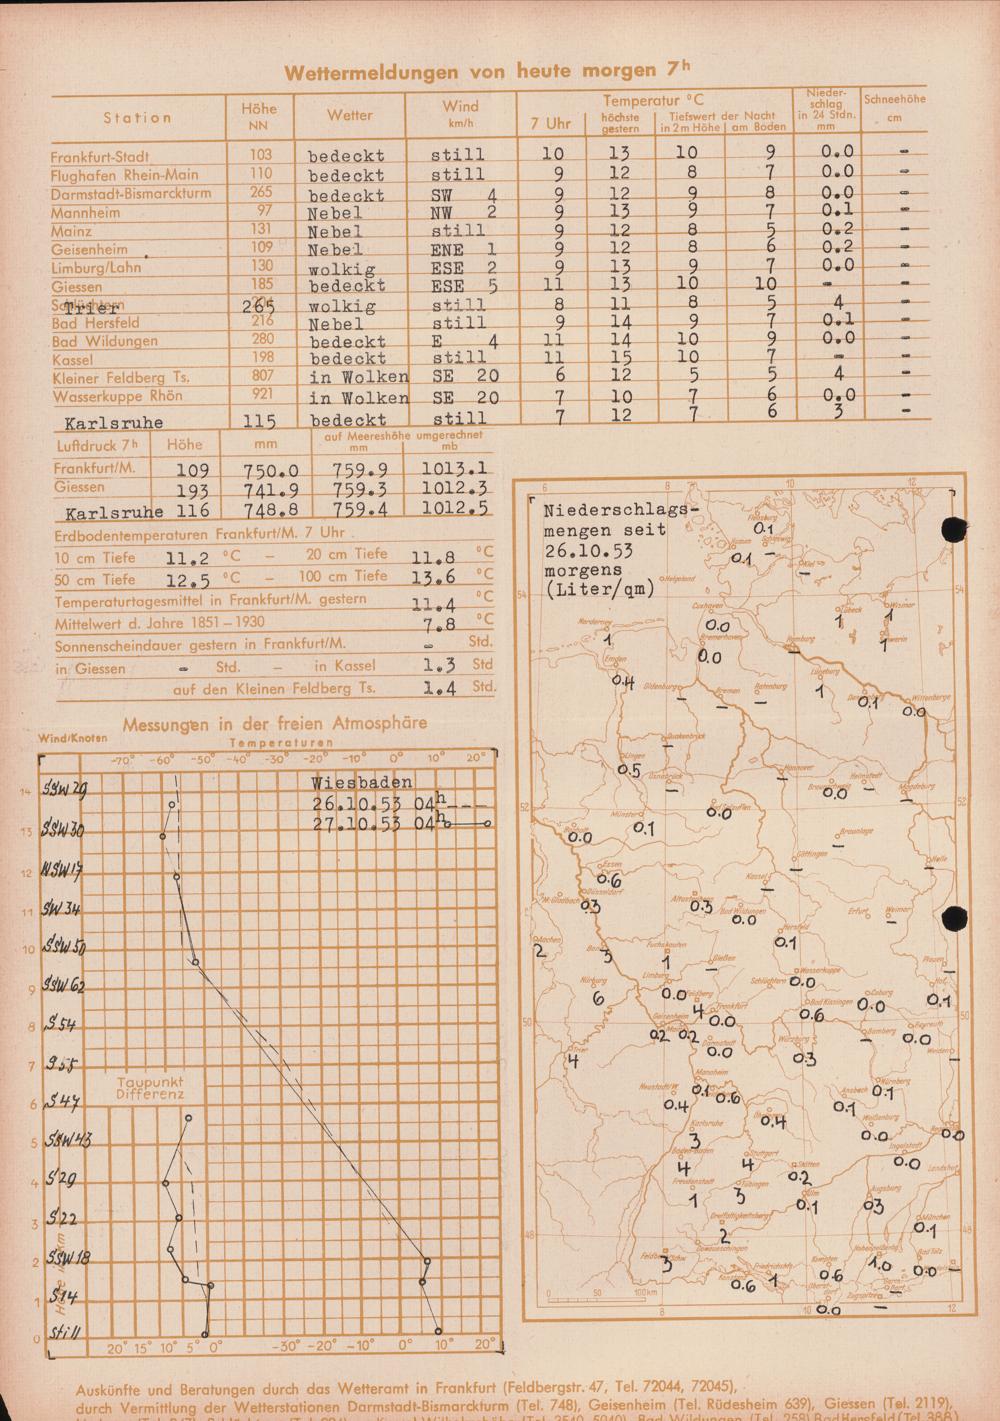 Wettermeldungen von heute morgen 7h
Station Höhe NN Wetter Wind km/h Temperatur °C Nieder- schlag in 24 Stdn. mm Schneehöhe cm
7 Uhr höchste gestern Tiefswert der Nacht in 2 m Höhe am Boden
Frankfurt-Stadt 103 bedeckt still 10 13 10 9 0.0 -
Flughafen Rhein-Main 110 bedeckt still 9 12 8 7 0.0 -
Darmstadt-Bismarckturm 265 bedeckt SW 4 9 12 9 8 0.0 -
Mannheim 97 Nebel NW 2 9 13 9 7 0.1 -
Mainz 131 Nebel still 9 12 8 5 0.2 -
Geisenheim 109 Nebel ENE 1 9 12 8 6 0.2 -
Limburg/Lahn 130 wolkig ESE 2 9 13 9 7 0.0 -
Giessen 185 bedeckt ESE 5 11 13 10 10 - -
Trier 265 wolkig still 8 11 8 5 4 -
Bad Hersfeld 216 Nebel still 9 14 9 7 0.1 -
Bad Wildungen 280 bedeckt E 4 11 14 10 9 0.0 -
Kassel 198 bedeckt still 11 15 10 7 - -
Kleiner Feldberg Ts. 807 in Wolken SE 20 6 12 5 5 4 -
Wasserkuppe Rhön 921 in Wolken SE 20 7 10 7 6 0.0 -
Karlsruhe 115 bedeckt still 7 12 7 6 3 -
Luftdruck 7h Höhe mm auf Meereshöhe umgerechnet mm mb
Frankfurt/M. 109 750.0 759.9 1013.1
Giessen 193 741.9 759.3 1012.3
Karlsruhe 116 748.8 759.4 1012.5
Erdbodentemperaturen Frankfurt/M. 7 Uhr
10 cm Tiefe 11.2 °C – 20 cm Tiefe 11.8 °C
50 cm Tiefe 12.5 °C – 100 cm Tiefe 13.6 °C
Temperaturtagesmittel in Frankfurt/M. gestern 11.4 °C
Mittelwert d. Jahre 1851–1930 7.8 °C
Sonnenscheindauer gestern in Frankfurt/M. - Std.
in Giessen - Std. – in Kassel 1.3 Std
auf den Kleinen Feldberg Ts. 1.4 Std.
Messungen in der freien Atmosphäre
Wind/Knoten Temperaturen
-70° -60° -50° -40° -30° -20° -10° 0° 10° 20°
Wiesbaden
26.10.53 04h
27.10.53 04h
14 SSW 29
13 SSW 30
12 WSW 17
11 SW 34
10 SSW 50
9 SSW 62
8 S 54
7 S 55
Taupunkt
Differenz
6 S 47
5 SSW 43
4 S 29
3 S 22
2 SSW 18
1 S 14
0 still
20° 15° 10° 5° 0° -30° -20° -10° 0° 10° 20°
6 8 10 12
Niederschlags-
mengen seit
26.10.53
morgens
(Liter/qm)
Flensburg 0.1
Husum 0.1 Schleswig -
Kiel -
Helgoland
54 54
Cuxhaven 0.0
Lübeck 1 Wismar 1
Norderney 1
Bremerhaven 0.0
Hamburg - Schwerin 1
Emden 0.4
Oldenburg - Bremen - Rotenburg -
Lüneburg 1 Dannenberg 0.1 Wittenberge 0.0
Quakenbrück -
Lingen 0.5
Osnabrück - Hannover - Braunschweig 0.0 Helmstedt - Magdeburg -
52 52
Münster 0.1 Bad Salzuflen 0.0
Bocholt 0.0
Braunlage -
Göttingen - Halle -
Essen 0.6
Kassel -
Düsseldorf 0.3
M.Gladbach
0.3 Bad Wildungen 0.0
Erfurt - Weimar -
Hersfeld 0.1
Aachen 2 3
1 Gießen - Plauen -
Wasserkuppe 0.0
Schlüchtern
Nürburg 6
Limburg 0.0 Feldberg 4
Bad Kissingen 0.6
Coburg 0.0 Hof 0.1
50 50
Frankfurt 0.0
Geisenheim 0.2 0.2
Bamberg - Bayreuth 0.0
Trier 4
Darmstadt 0.0 Würzburg 0.3
Weiden -
Mannheim 0.1 0.6
Neustadt/W 0.4
Nürnberg 0.1
Ansbach 0.1
0.4 Weißenburg 0.0
Karlsruhe 3
0.0
Baden-Baden 4 Stuttgart 4
Ingolstadt 0.0
Landshut
Freudenstadt 1 Tübingen 3
Stötten 0.2
Ulm 0.1 Augsburg 0.3
München 0.1
48 48
2
Donaueschingen
3
Friedrichshfn. 1
0.6
Kempten 0.6
Hohenpeißenbg. 1.0
Bad Tölz 0.0 -
Oberst- dorf 0.0
Zugspitze -
0 50 100km
8 10 12
Auskünfte und Beratungen durch das Wetteramt in Frankfurt (Feldbergstr. 47, Tel. 72044, 72045),
durch Vermittlung der Wetterstationen Darmstadt-Bismarckturm (Tel. 748), Geisenheim (Tel. Rüdesheim 639), Giessen (Tel. 2119),